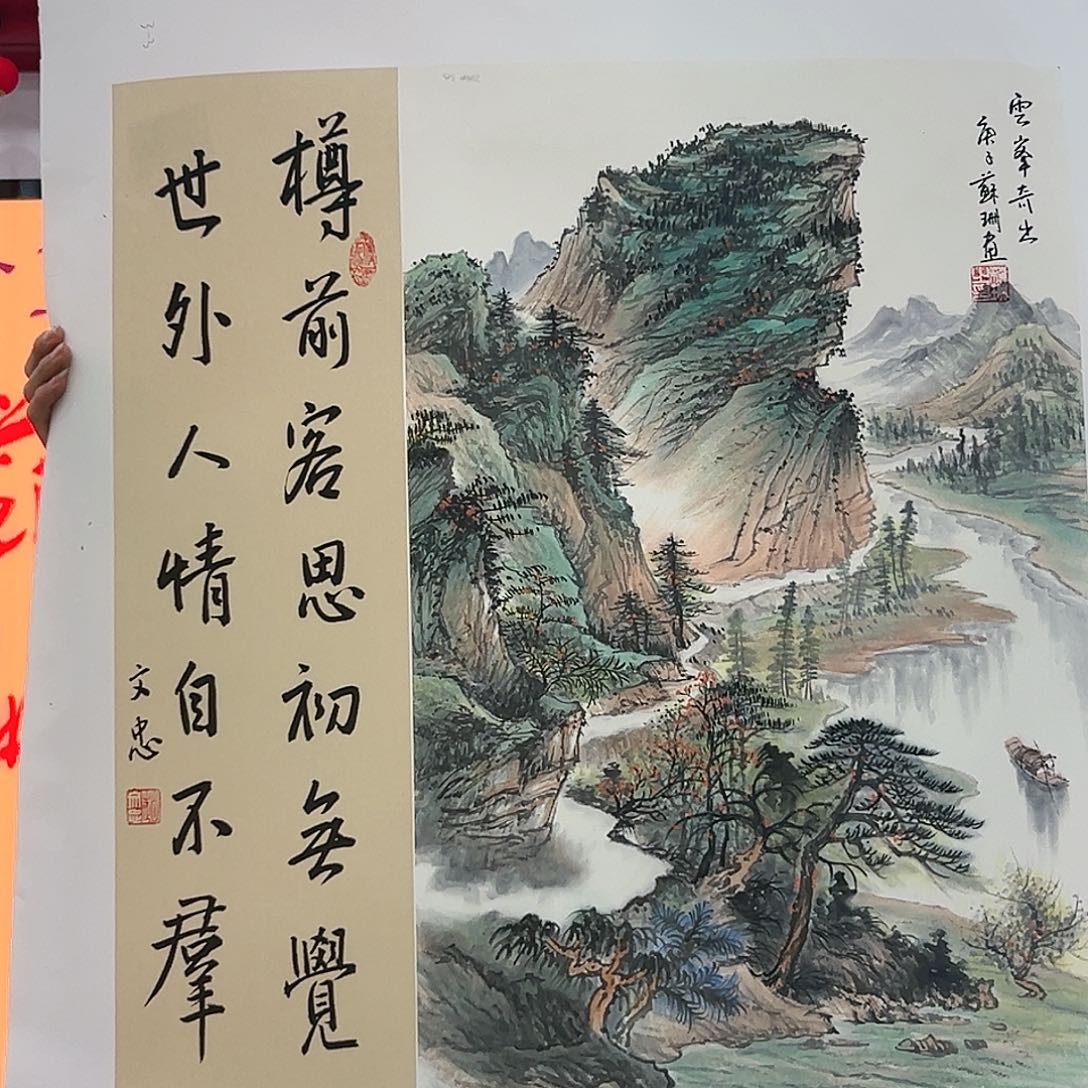 雲峯奇出
庚子蘇珊畫
樽前客思初無覺
世外人情自不羣
文忠